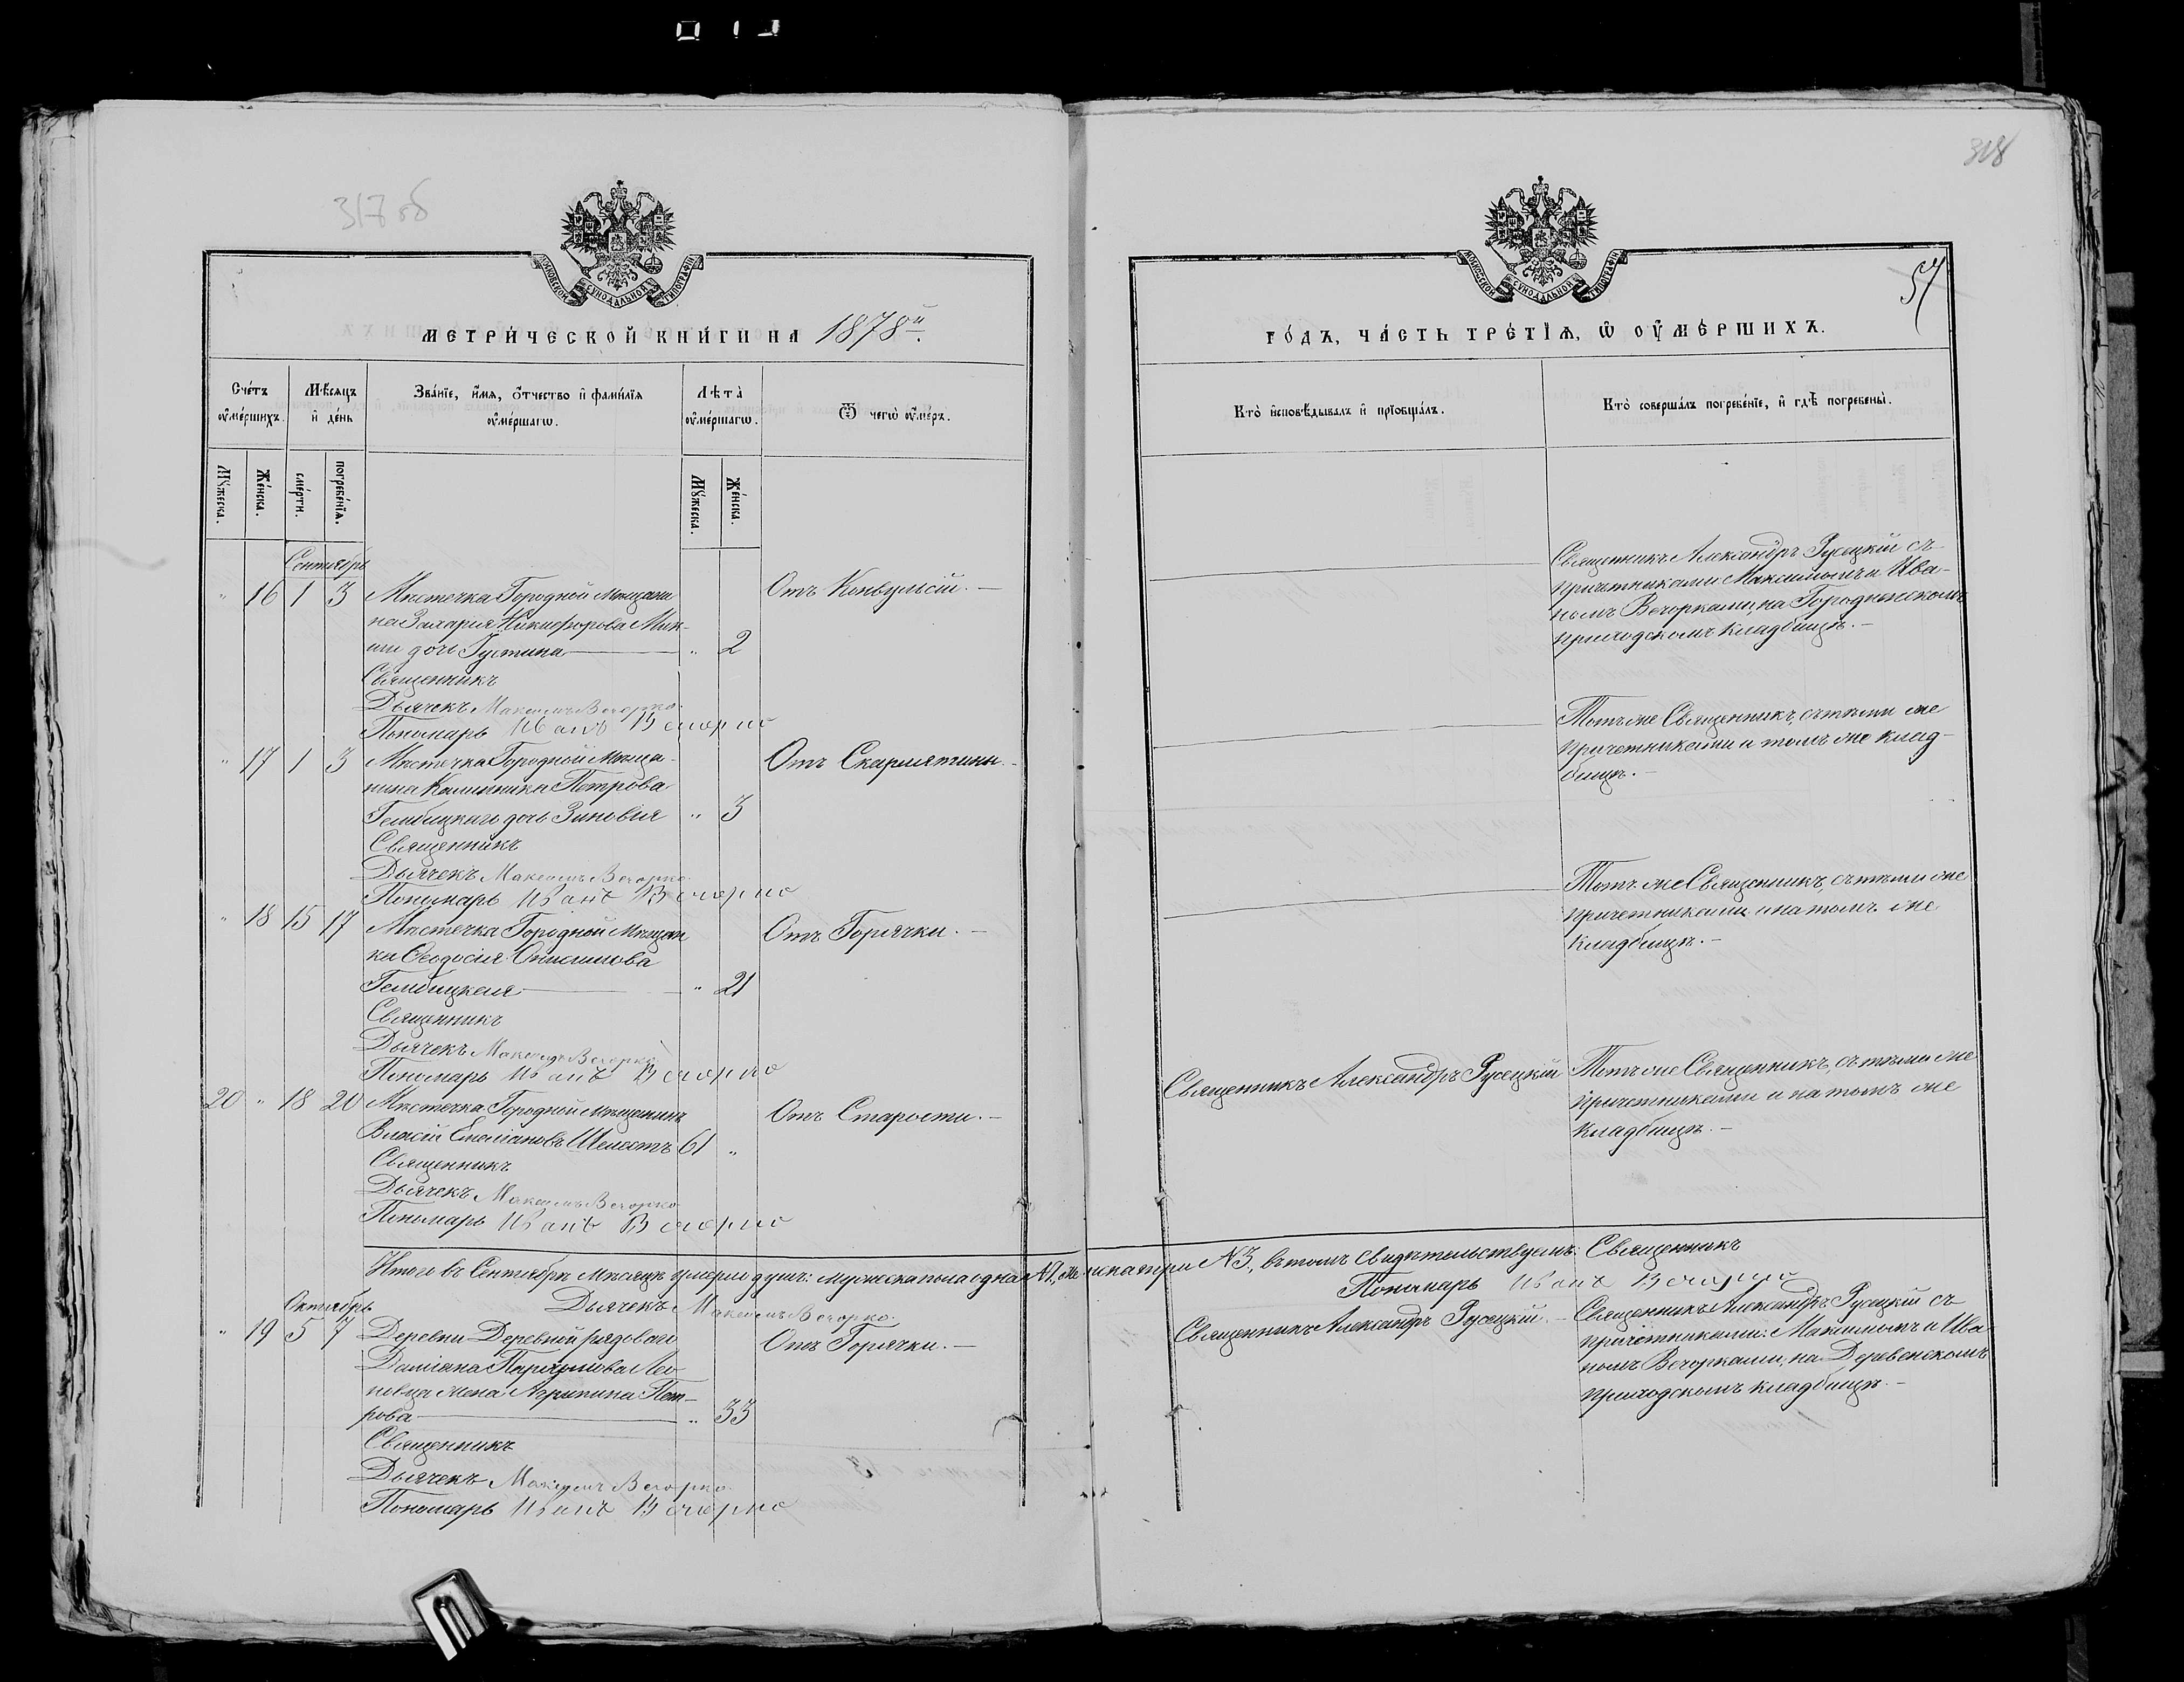 317 об
318
57
МОСКОВСКОЙ СУНОДАЛЬНОЙ ТИПОГРАФІИ
МЕТРИ́ЧЕСКОЙ КНИ́ГИ НА 1878й.
Сче́тъ оу҆ме́ршихъ.
Мѣ́сяцъ и҆ де́нь
Зва́нїе, и҆́мѧ, ѻ҆́тчество и҆ фами́лїѧ оу҆ме́ршагѡ.
Лѣ́та̀ оу҆ме́ршагѡ.
Ѿ чегѡ̀ оу҆́меръ.
Мꙋ́жеска.
Же́нска.
сме́рти.
погребе́нїѧ.
Мꙋ́жеска.
Же́нска.
Сентябрь
" 16 1 3 Мѣстечка Городной Мѣщани- Отъ Конвульсій. —
на Захарія Никифорова Мик-
ши дочь Іустина — " 2
Священникъ
Дьячекъ Максимъ Вечорко.
Пономарь Иванъ Вечорко
" 17 1 3 Мѣстечка Городной Мѣща- Отъ Скарлятины. —
нина Калинника Петрова
Гембицкаго дочь Зиновія " 3
Священникъ
Дьячекъ Максимъ Вечорко
Пономарь Иванъ Вечорко
" 18 15 17 Мѣстечка Городной Мѣщан- Отъ Горячки. —
ка Ѳеодосія Онисимова
Гембицкая — " 21
Священникъ
Дьячекъ Максимъ Вечорко
Пономарь Иванъ Вечорко
20 " 18 20 Мѣстечка Городной Мѣщанинъ Отъ Старости. —
Власій Емеліановъ Шелестъ 61 "
Священникъ
Дьячекъ Максимъ Вечорко
Пономарь Иванъ Вечорко
Итого въ Сентябрѣ Мѣсяцѣ умерло душъ: мужеска пола одна №1, женска три №3, въ томъ свидѣтельствуемъ: Священникъ
Дьячекъ Максимъ Вечорко. Пономарь Иванъ Вечорко
Октябрь
" 19 5 7 Деревни Деревной рядоваго Отъ Горячки. —
Даміана
жена Агрипина Пет-
рова — " 33
Священникъ
Дьячекъ Максимъ Вечорко.
Пономарь Иванъ Вечорко
ГО́ДЪ, ЧА́СТЬ ТРЕ́ТЇѦ, Ѡ҆ ОУ҆МЕ́РШИХЪ.
Кто̀ и҆сповѣ́дывалъ и҆ прїобща́лъ.
Кто̀ соверша́лъ погребе́нїе, и҆ гдѣ̀ погребены̀.
Священникъ Александръ Русецкій съ
причетниками: Максимомъ и Ива-
номъ Вечорками на Городненскомъ
приходскомъ кладбищѣ. —
Тотъ же Священникъ, съ тѣми же
причетниками и томъ же клад-
бищѣ. —
Тотъ же Священникъ, съ тѣми же
причетниками и на томъ же
кладбищѣ. —
Священникъ Александръ Русецкій Тотъ же Священникъ, съ тѣми же
причетниками и на томъ же
кладбищѣ. —
Священникъ Александръ Русецкій. — Священникъ Александръ Русецкій съ
причетниками: Максимомъ и Ива-
номъ Вечорками, на Деревенскомъ
приходскомъ кладбищѣ. —